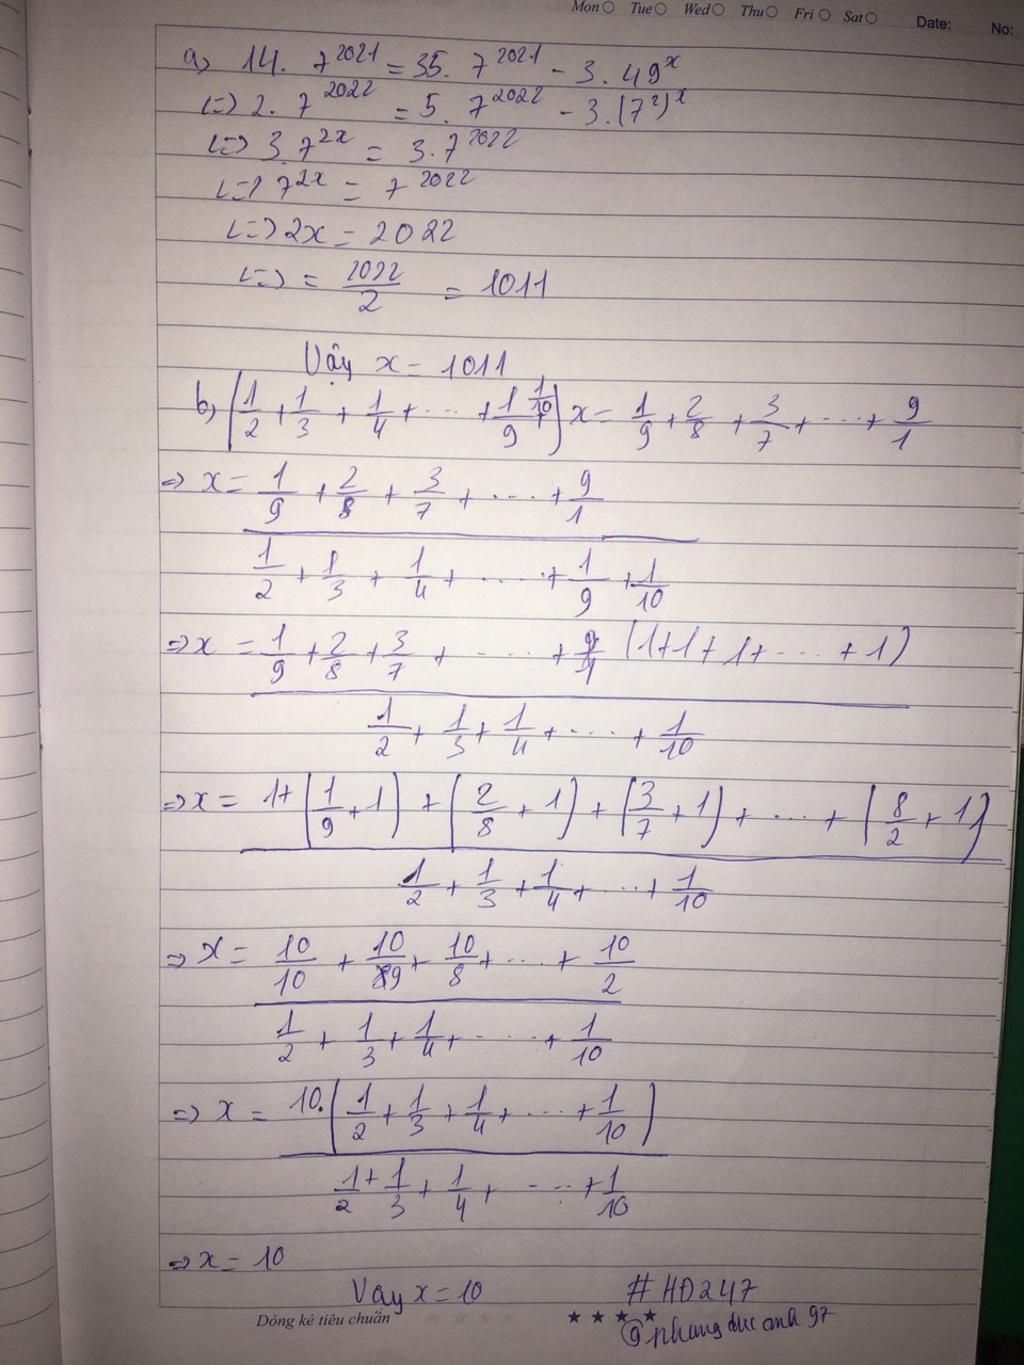 Mon Tue Wed Thu Fri Sat Date: No:
a, 14. 7^2021 = 35. 7^2021 - 3. 49^x
<=> 2. 7^2022 = 5. 7^2022 - 3. (7^2)^x
<=> 3.7^2x = 3.7^2022
<=> 7^2x = 7^2022
<=> 2x = 2022
<=> = 2022/2 = 1011
Vậy x = 1011
b, (1/2 + 1/3 + 1/4 + .... + 1/9 + 1/10) x = 1/9 + 2/8 + 3/7 + .... + 9/1
=> x = 1/9 + 2/8 + 3/7 + .... + 9/1
1/2 + 1/3 + 1/4 + ..... + 1/9 + 1/10
=> x = 1/9 + 2/8 + 3/7 + .... + (1+1+1+....+1)
1/2 + 1/3 + 1/4 + .... + 1/10
=> x = 1+ (1/9 + 1) + (2/8 + 1) + (3/7 + 1) + .... + (8/2 + 1)
1/2 + 1/3 + 1/4 + .... + 1/10
=> x = 10/10 + 10/9 + 10/8 + .... + 10/2
1/2 + 1/3 + 1/4 + .... + 1/10
=> x = 10. (1/2 + 1/3 + 1/4 + .... + 1/10)
1/2 + 1/3 + 1/4 + .... + 1/10
=> x = 10
Vay x = 10 # HĐ247
Dòng kẻ tiêu chuẩn ★ ★ ★ ★ @phung duc anh 97